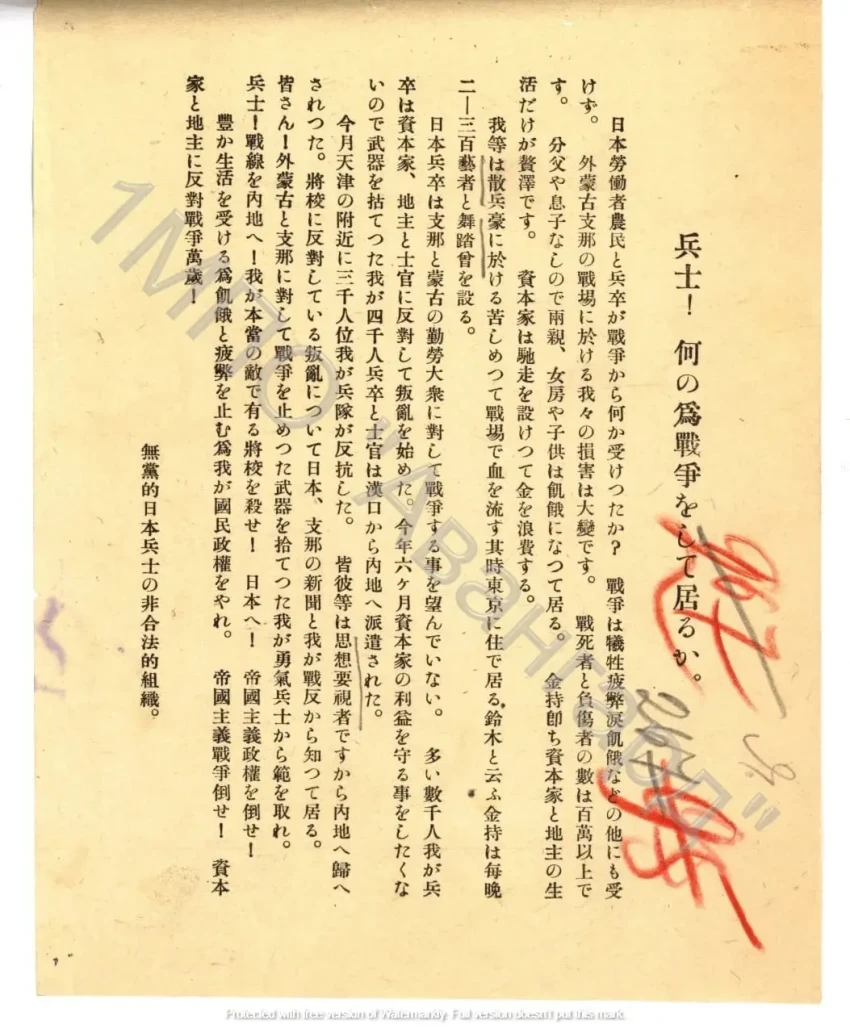 兵士！ 何の爲戰爭をして居るか。
日本勞働者農民と兵卒が戰爭から何か受けつたか？ 戰爭は犧牲疲弊淚飢餓などの他にも受
けず。 外蒙古支那の戰場に於ける我々の損害は大變です。 戰死者と負傷者の數は百萬以上で
す。 分父や息子なしので兩親、女房や子供は飢餓になつて居る。 金持卽ち資本家と地主の生
活だけが贅澤です。 資本家は馳走を設けつて金を浪費する。
我等は散兵豪に於ける苦しめつて戰場で血を流す其時東京に住で居る鈴木と云ふ金持は每晩
二―三百藝者と舞踏曾を設る。
日本兵卒は支那と蒙古の勤勞大衆に對して戰爭する事を望んでいない。 多い數千人我が兵
卒は資本家、地主と士官に反對して叛亂を始めた。今年六ヶ月資本家の利益を守る事をしたくな
いので武器を捨てつた我が四千人兵卒と士官は漢口から內地へ派遣された。
今月天津の附近に三千人位我が兵隊が反抗した。 皆彼等は思想要視者ですから內地へ歸へ
されつた。將校に反對している叛亂について日本、支那の新聞と我が戰反から知つて居る。
皆さん！外蒙古と支那に對して戰爭を止めつた武器を捨てつた我が勇氣兵士から範を取れ。
兵士！戰線を內地へ！我が本當の敵で有る將校を殺せ！ 日本へ！ 帝國主義政權を倒せ！
豐か生活を受ける爲飢餓と疲弊を止む爲我が國民政權をやれ。 帝國主義戰爭倒せ！ 資本
家と地主に反對戰爭萬歲！
無黨的日本兵士の非合法的組織。
1МПО "АВангард"
Protected with free version of Watermarkly. Full version doesn't put this mark.